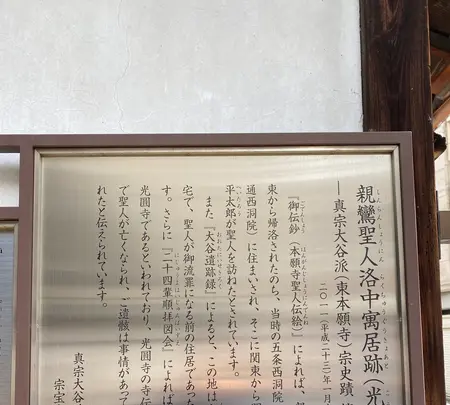 親鸞聖人洛中寓居跡(光
しんらんしょうにん らくちゅうぐうきょあと
―真宗大谷派(東本願寺)宗史蹟
二〇一一(平成二十三)年一月
『御伝鈔(本願寺聖人伝絵)』によれば、
東から帰洛されたのち、当時の五条西洞院
通西洞院)に住まいされ、そこに関東から
平太郎が聖人を訪ねたとされています。
また『大谷遺跡録』によると、この地は
宅で、聖人が御流罪になる前の住居であった
す。さらに『二十四輩順拝図会』によれば
光圓寺であるといわれており、光圓寺の寺伝
で聖人が亡くなられ、ご遺骸は事情があって
れたと伝えられています。
真宗大谷
宗宝